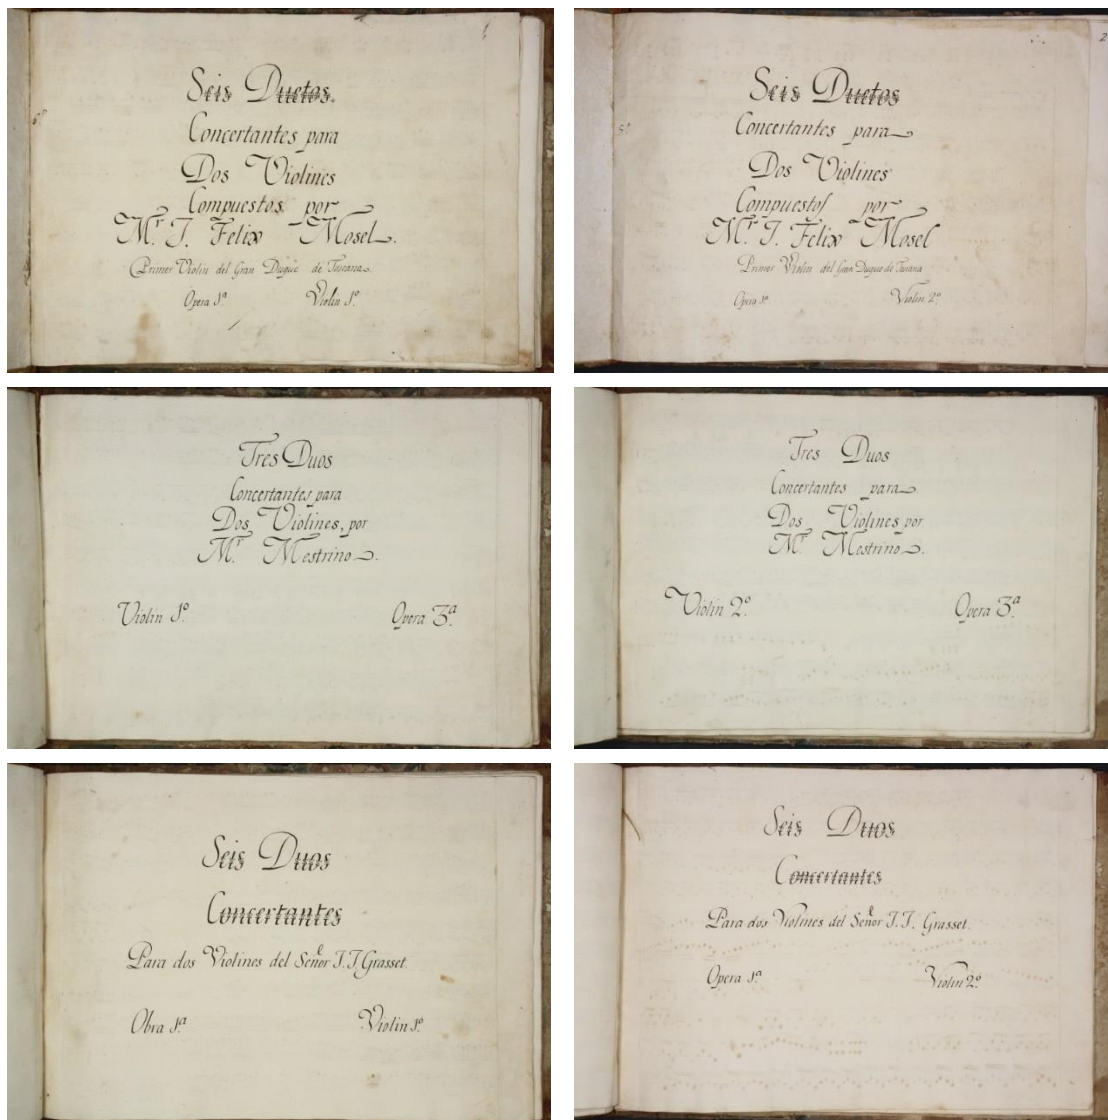 Seis Duetos.
6º
Concertantes para
Dos Violines
Compuestos por
M.r J. Felix Mosel.
Primer Violin del Gran Duque de Toscana.
Opera 1ª Violin 1º
2
Seis Duetos
5º
Concertantes para
Dos Violines
Compuestos por
M.r J. Felix Mosel
Primer Violin del Gran Duque de Toscana
Opera 1ª Violin 2º
Tres Duos
Concertantes para
Dos Violines, por
M.r Mestrino.
Violin 1º Opera 3ª
Tres Duos
Concertantes para
Dos Violines por
M.r Mestrino.
Violin 2º Opera 3ª
Seis Duos
Concertantes
Para dos Violines del Señor J. J. Grasset.
Obra 1ª Violin 1º
Seis Duos
Concertantes
Para dos Violines del Señor J. J. Grasset.
Opera 1ª Violin 2º